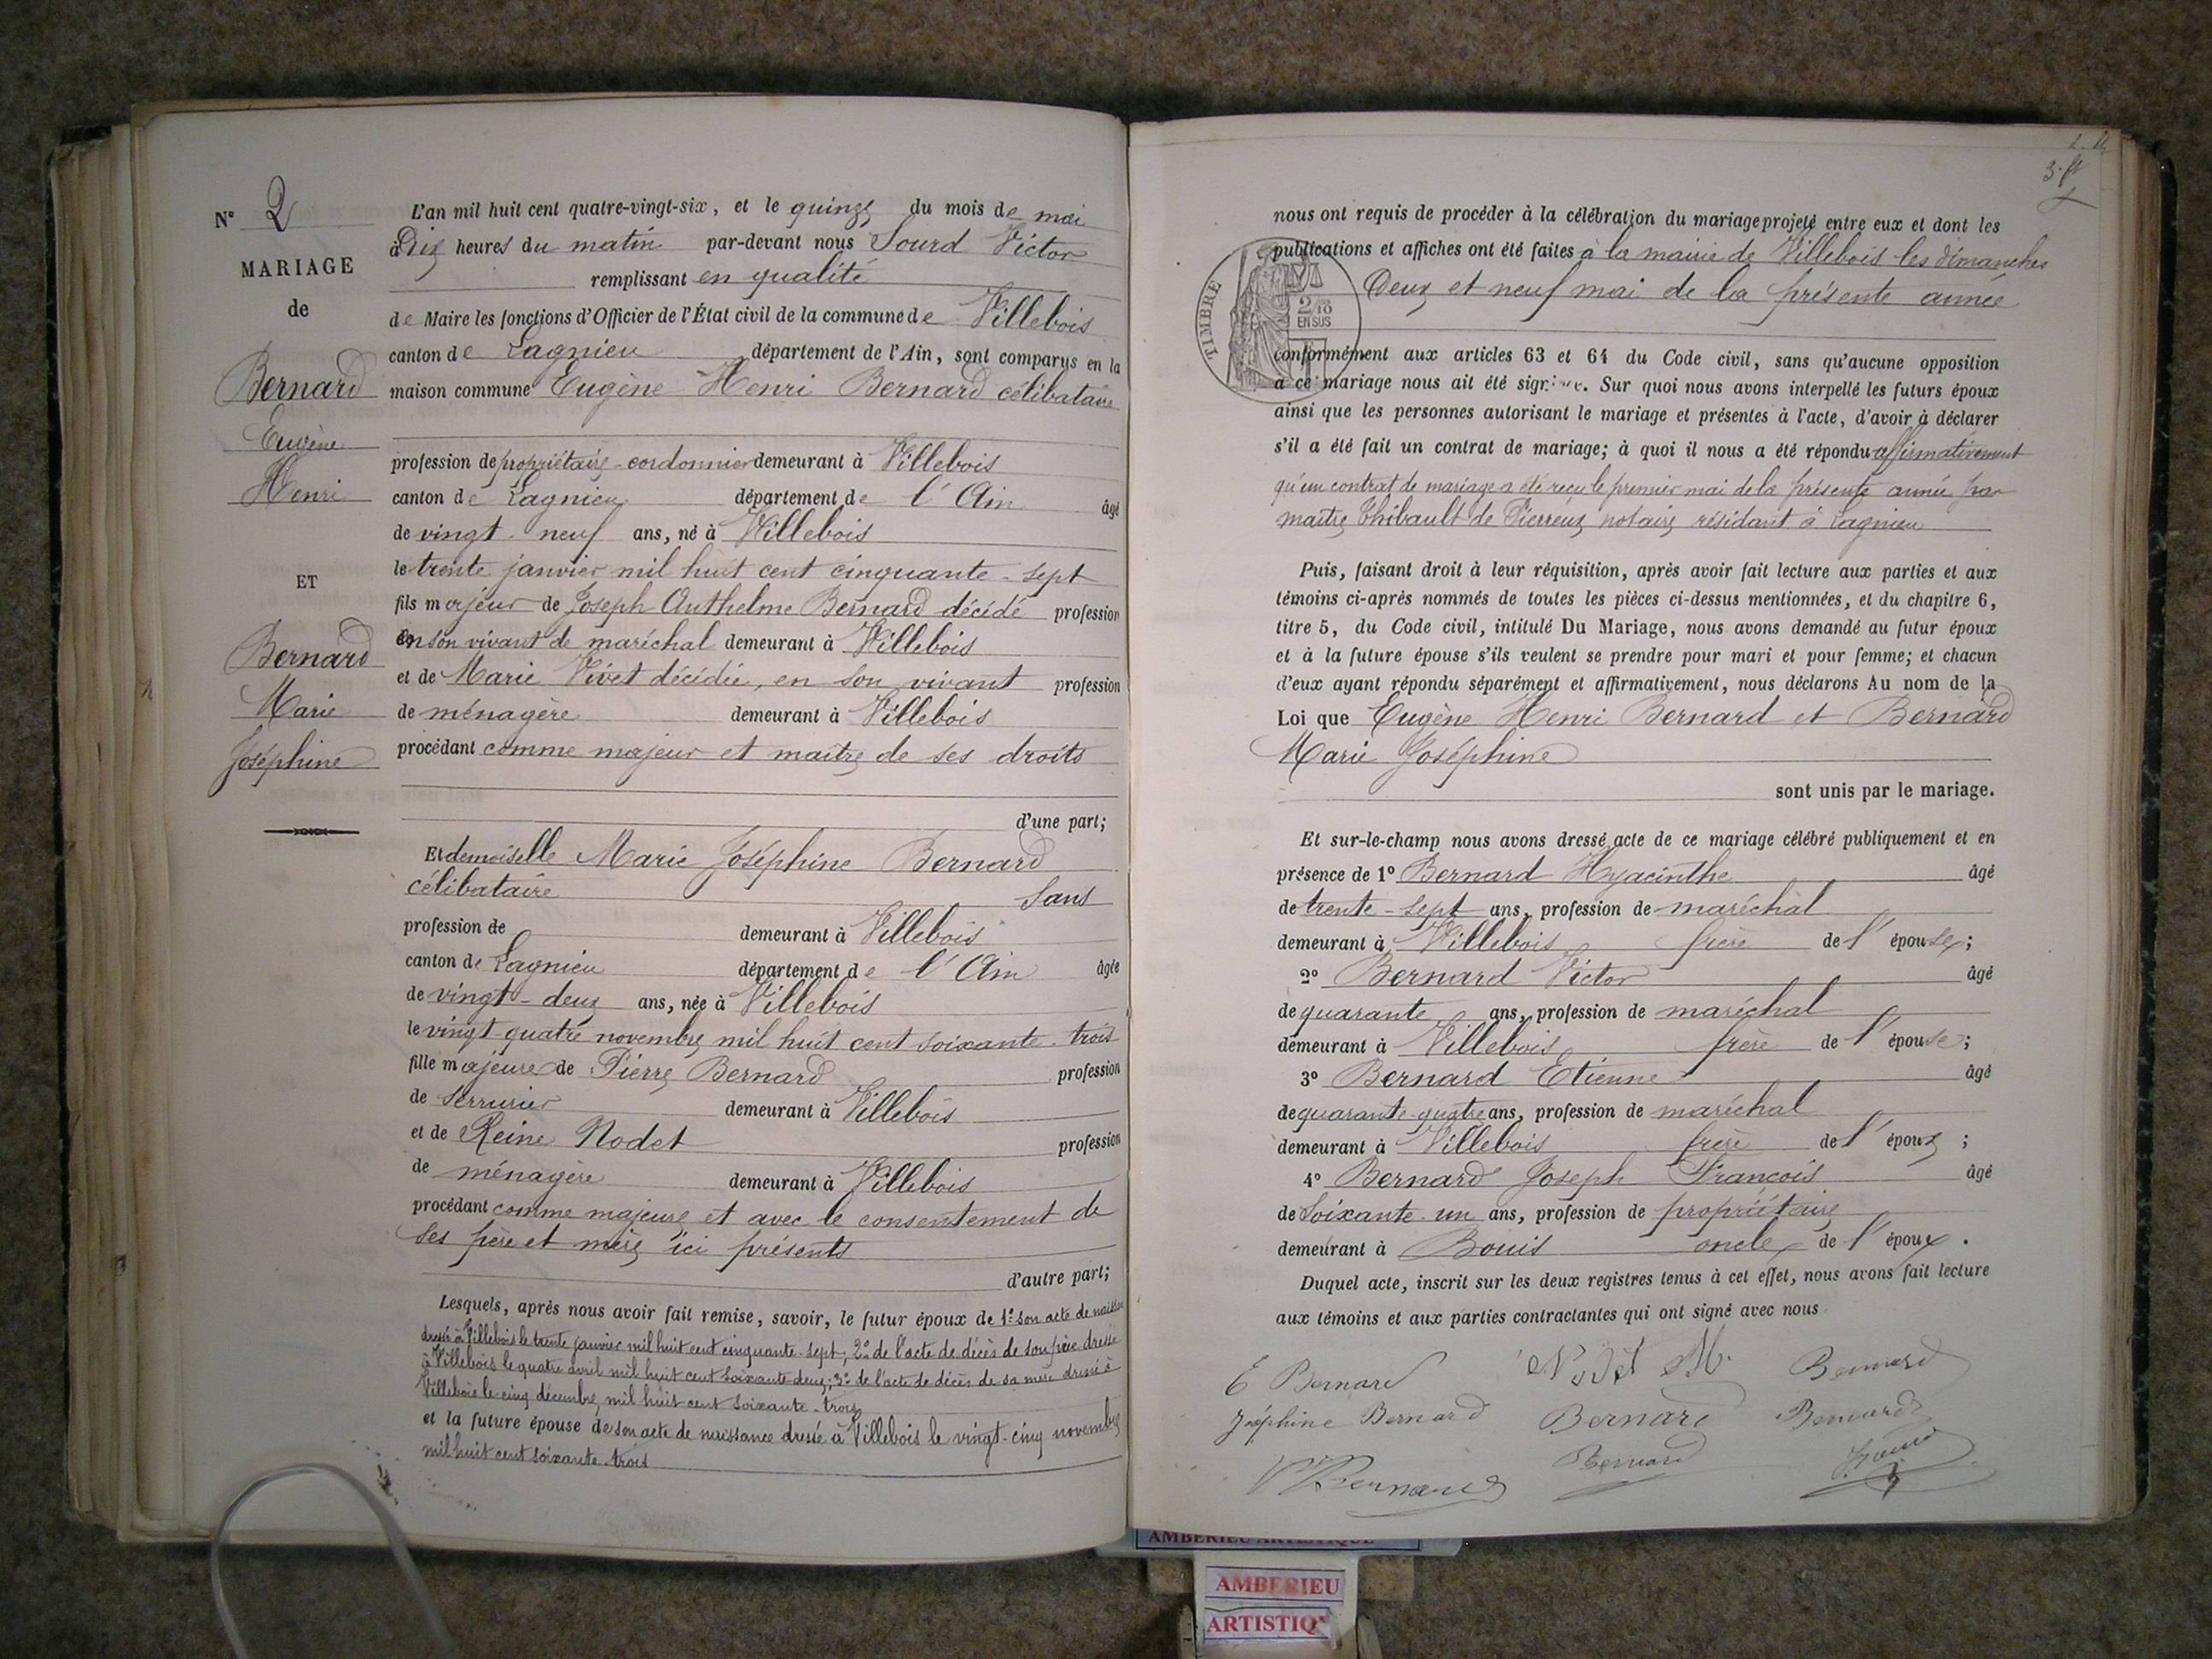 N° 2
MARIAGE
de
Bernard
Eugène
Henri
ET
Bernard
Marie
Joséphine
L'an mil huit cent quatre-vingt-six, et le quinze du mois de mai
à Dix heures du matin par-devant nous Sourd Victor
remplissant en qualité
de Maire les fonctions d'Officier de l'État civil de la commune de Villebois
canton de Lagnieu département de l'Ain, sont comparus en la
maison commune Eugène Henri Bernard célibataire
profession de propriétaire-cordonnier demeurant à Villebois
canton de Lagnieu département de l'Ain âgé
de vingt-neuf ans, né à Villebois
le trente janvier mil huit cent cinquante-sept
fils majeur de Joseph Anthelme Bernard décédé profession
en son vivant de maréchal demeurant à Villebois
et de Marie Vivet décédée, en son vivant profession
de ménagère demeurant à Villebois
procédant comme majeur et maître de ses droits
d'une part;
Et demoiselle Marie Joséphine Bernard
célibataire Sans
profession de demeurant à Villebois
canton de Lagnieu département de l'Ain âgée
de vingt-deux ans, née à Villebois
le vingt-quatre novembre mil huit cent soixante-trois
fille majeure de Pierre Bernard profession
de serrurier demeurant à Villebois
et de Reine Nodet profession
de ménagère demeurant à Villebois
procédant comme majeure et avec le consentement de
ses père et mère ici présents
d'autre part;
Lesquels, après nous avoir fait remise, savoir, le futur époux de 1° son acte de naissance
dressé à Villebois le trente janvier mil huit cent cinquante-sept; 2° de l'acte de décès de son père dressé
à Villebois le quatre avril mil huit cent soixante-deux; 3° de l'acte de décès de sa mère dressé à
Villebois le cinq décembre mil huit cent soixante-trois
et la future épouse de son acte de naissance dressé à Villebois le vingt-cinq novembre
mil huit cent soixante-trois
nous ont requis de procéder à la célébration du mariage projeté entre eux et dont les
publications et affiches ont été faites à la mairie de Villebois les dimanches
Deux et neuf mai de la présente année
TIMBRE
2/10
EN SUS
conformément aux articles 63 et 64 du Code civil, sans qu'aucune opposition
à ce mariage nous ait été signifiée. Sur quoi nous avons interpellé les futurs époux
ainsi que les personnes autorisant le mariage et présentes à l'acte, d'avoir à déclarer
s'il a été fait un contrat de mariage; à quoi il nous a été répondu affirmativement
qu'un contrat de mariage a été reçu le premier mai de la présente année par
maître Thibault de Pierreux notaire résidant à Lagnieu
Puis, faisant droit à leur réquisition, après avoir fait lecture aux parties et aux
témoins ci-après nommés de toutes les pièces ci-dessus mentionnées, et du chapitre 6,
titre 5, du Code civil, intitulé Du Mariage, nous avons demandé au futur époux
et à la future épouse s'ils veulent se prendre pour mari et pour femme; et chacun
d'eux ayant répondu séparément et affirmativement, nous déclarons Au nom de la
Loi que Eugène Henri Bernard et Bernard
Marie Joséphine
sont unis par le mariage.
Et sur-le-champ nous avons dressé acte de ce mariage célébré publiquement et en
présence de 1° Bernard Hyacinthe âgé
de trente-sept ans, profession de maréchal
demeurant à Villebois frère de l'épouse;
2° Bernard Victor âgé
de quarante ans, profession de maréchal
demeurant à Villebois frère de l'épouse;
3° Bernard Etienne âgé
de quarante-quatre ans, profession de maréchal
demeurant à Villebois frère de l'époux;
4° Bernard Joseph François âgé
de Soixante-un ans, profession de propriétaire
demeurant à Bouis oncle de l'époux.
Duquel acte, inscrit sur les deux registres tenus à cet effet, nous avons fait lecture
aux témoins et aux parties contractantes qui ont signé avec nous
E Bernard Nodet M. Bernard
Joséphine Bernard Bernard Bernard
Vr Bernard Bernard
AMBERIEU ARTISTIQUE
AMBERIEU
ARTISTIQ